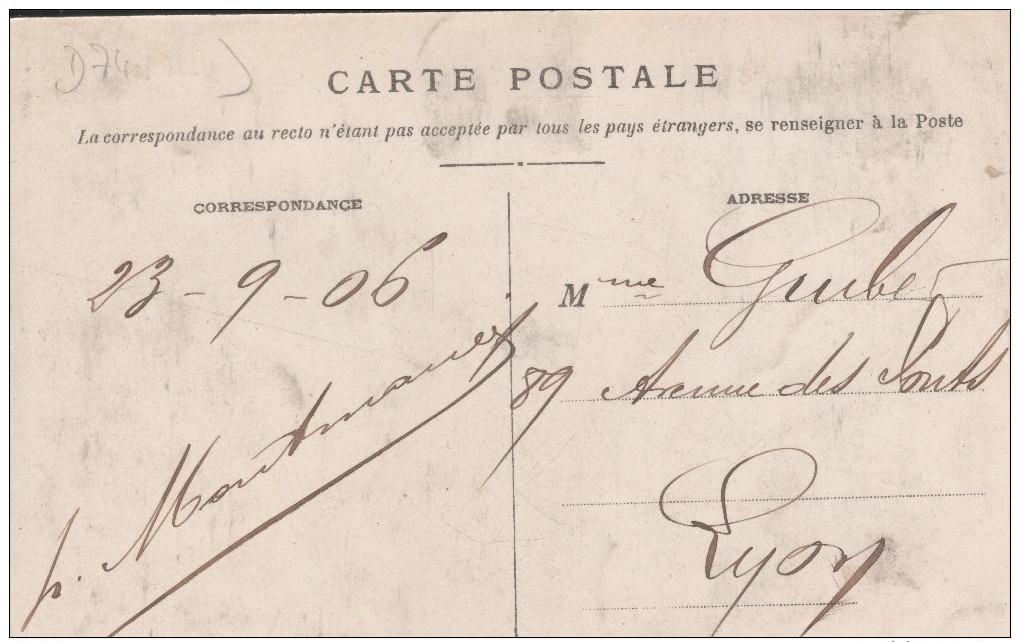 D74
CARTE POSTALE
La correspondance au recto n'étant pas acceptée par tous les pays étrangers, se renseigner à la Poste
CORRESPONDANCE
23-9-06
p.
ADRESSE
Mme
89 Avenue des Ponts
Lyon